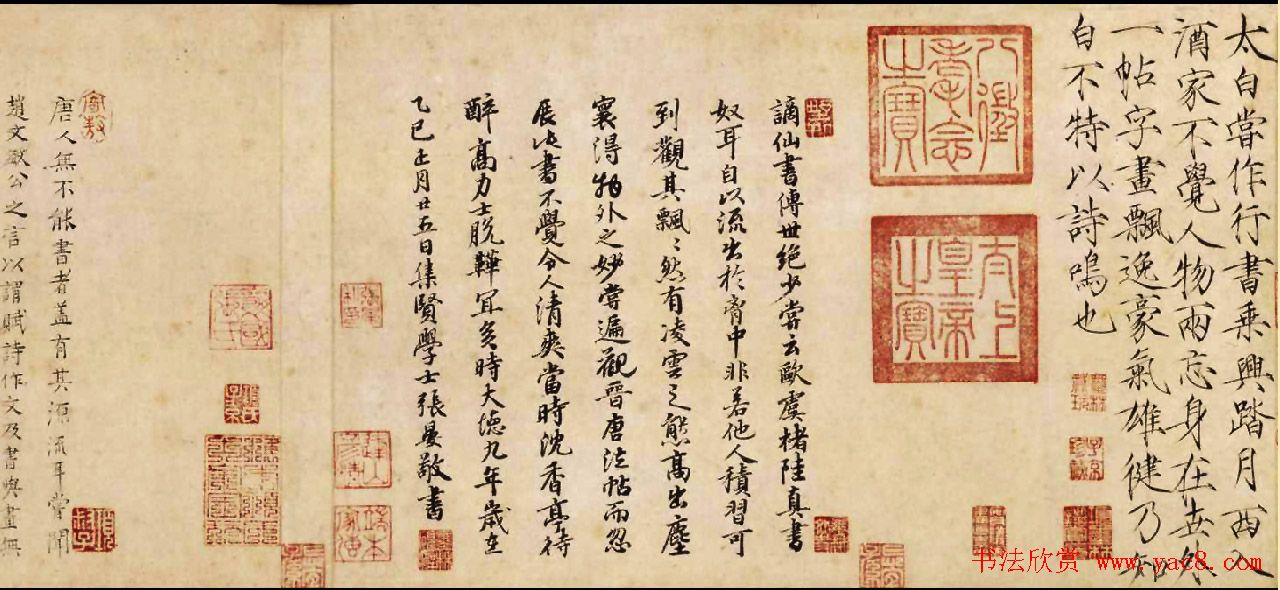 太白嘗作行書乘興踏月西入
酒家不覺人物兩忘身在世外
一帖字畫飄逸豪氣雄健乃知
白不特以詩鳴也
八徵耄念之寶
太上皇帝之寶
謫仙書傳世絶少嘗云歐虞褚陸真書
奴耳自以流出於胷中非若他人積習可
到觀其飄〻然有凌雲之態高出塵
寰得物外之妙嘗遍觀晉唐法帖而忽
展此書不覺令人清爽當時沈香亭待
醉高力士脱鞾宜矣時大德九年歲在
乙巳上月廿五日集賢學士張晏敬書
唐人無不能書者蓋有其源流耳嘗聞
趙文敏公之言以謂賦詩作文及書與畫無
书法欣赏 www.yac8.com